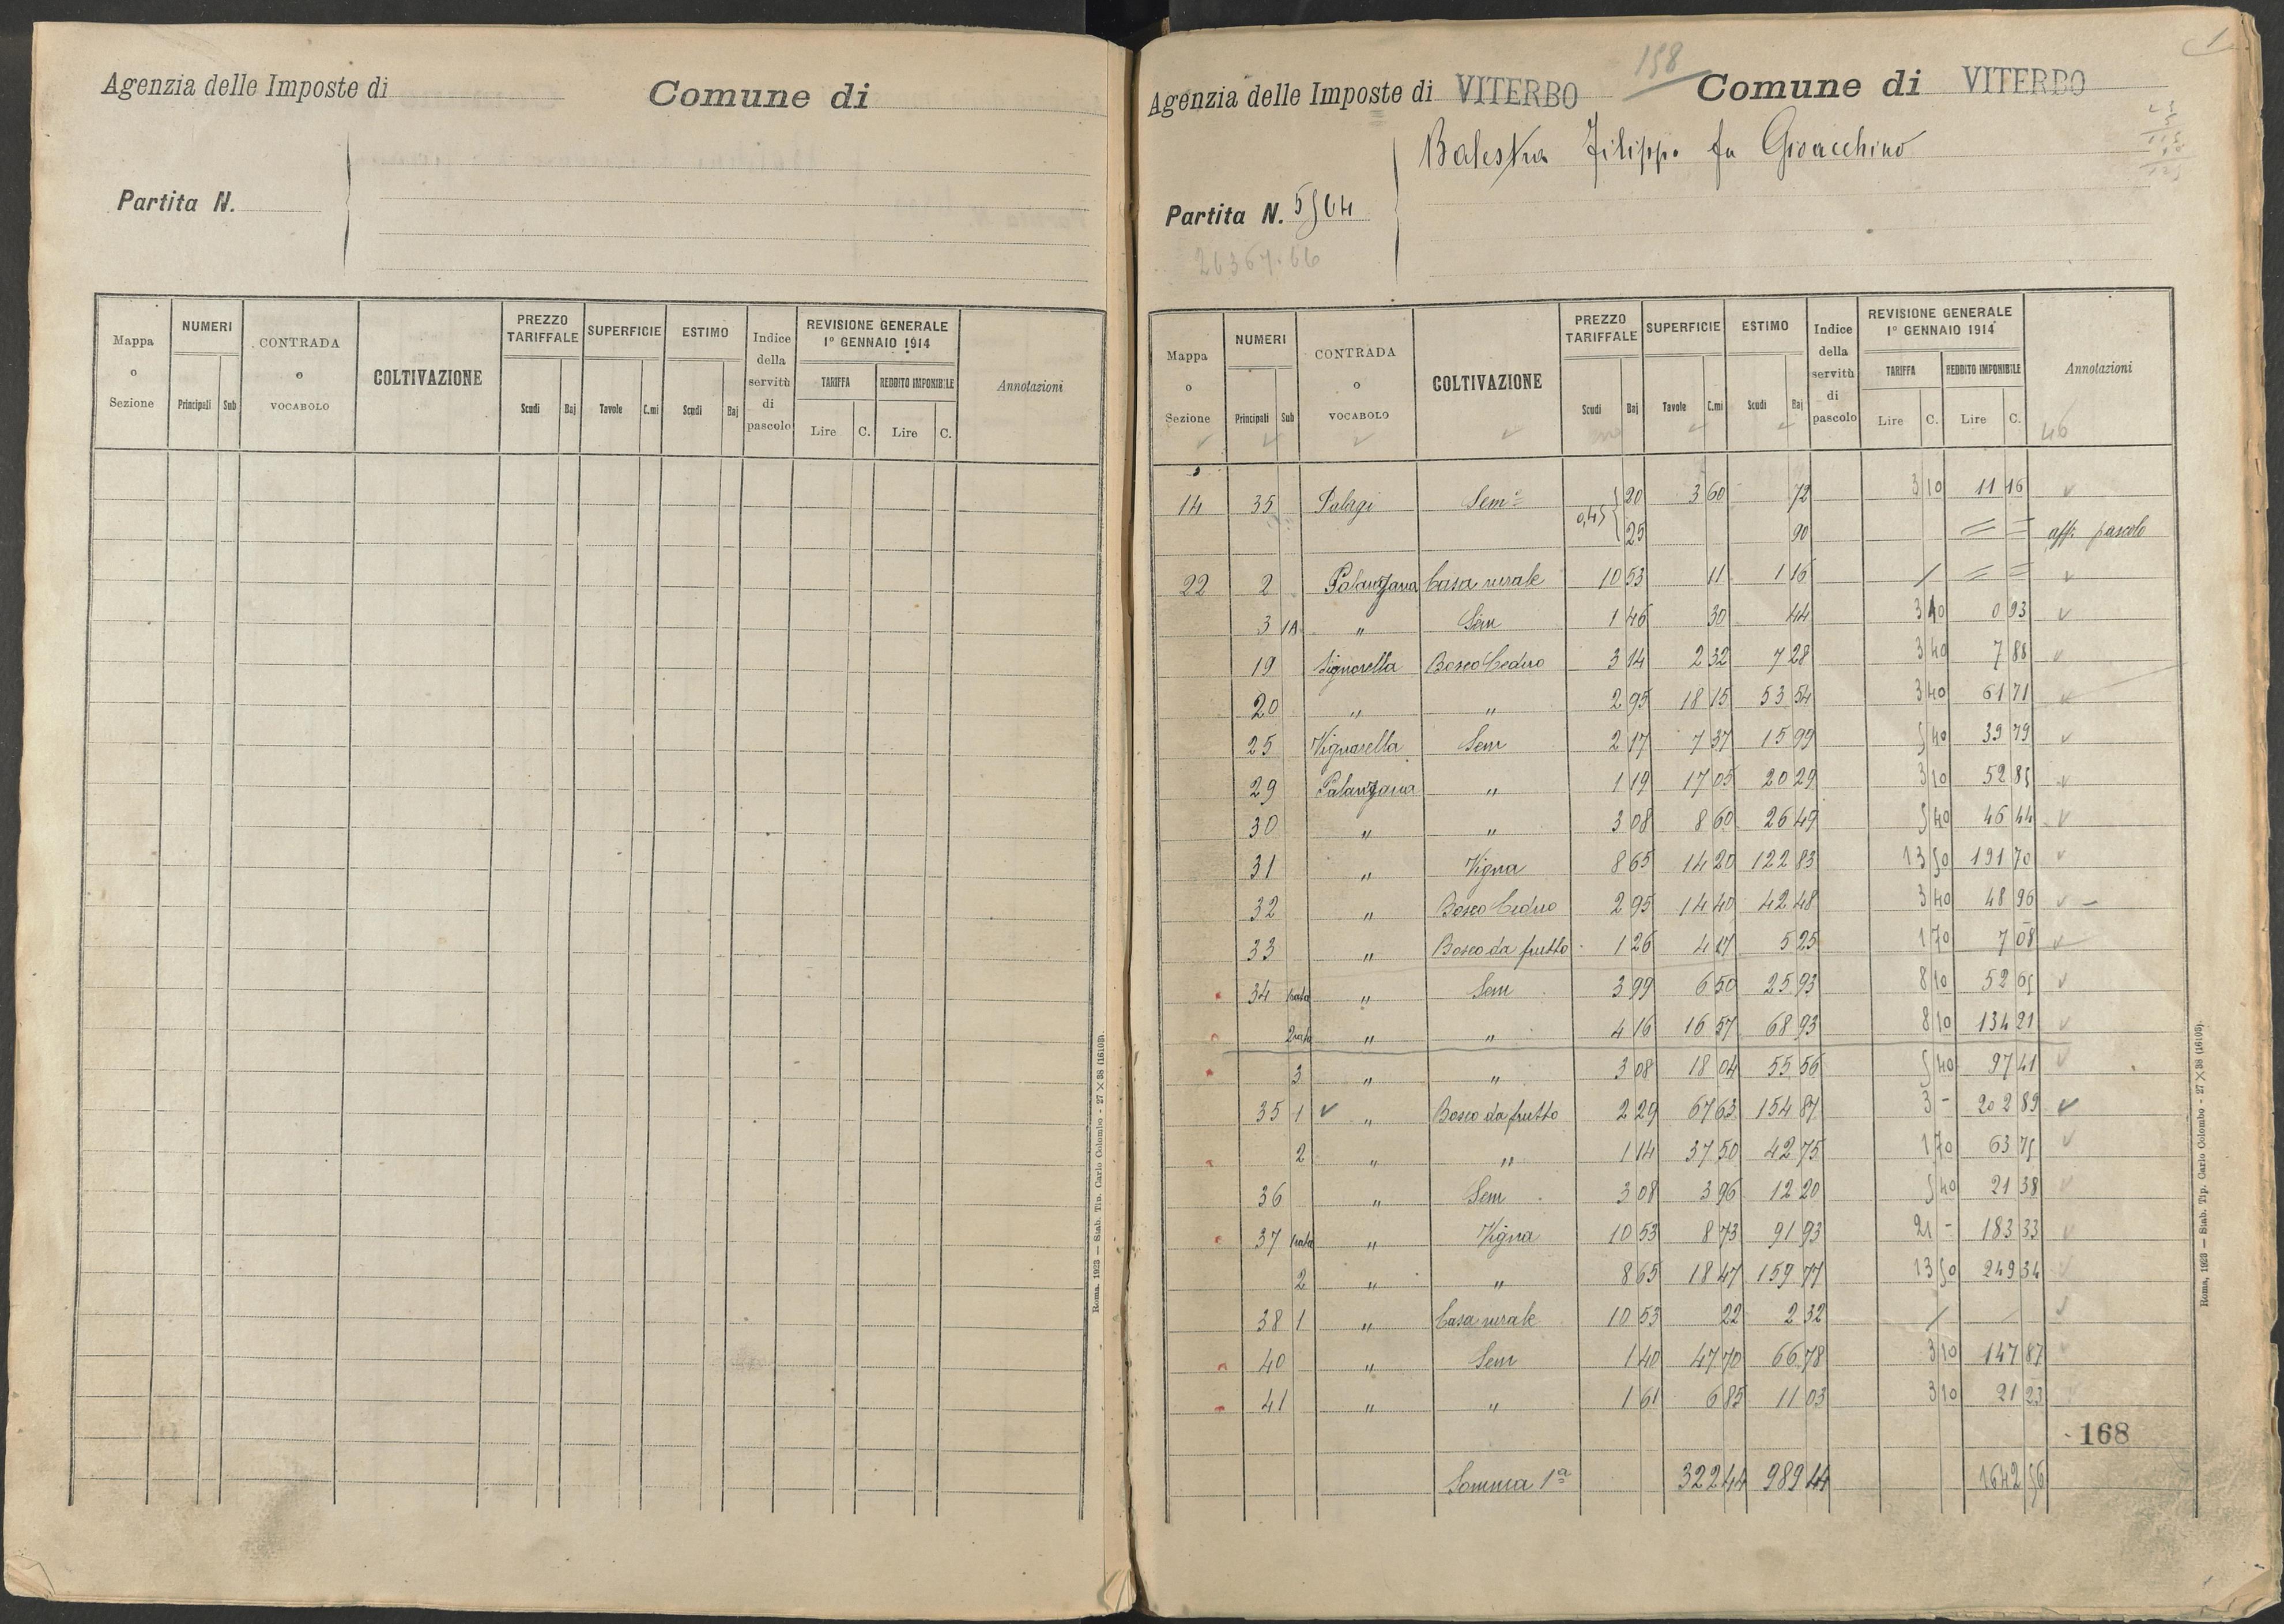 Agenzia delle Imposte di
Comune di
Partita N.
Mappa o Sezione
NUMERI
Principali Sub
CONTRADA o VOCABOLO
COLTIVAZIONE
PREZZO TARIFFALE
Scudi Baj
SUPERFICIE
Tavole C.mi
ESTIMO
Scudi Baj
Indice della servitù di pascolo
REVISIONE GENERALE
1° GENNAIO 1914
TARIFFA
Lire C.
REDDITO IMPONIBILE
Lire C.
Annotazioni
Roma. 1923 — Stab. Tip. Carlo Colombo - 27 × 38 (16103).
198
Agenzia delle Imposte di VITERBO Comune di VITERBO
Balestra Filippo fu Gioacchino
Partita N. 5504
26367.66
Mappa o Sezione
NUMERI
Principali Sub
CONTRADA o VOCABOLO
COLTIVAZIONE
PREZZO TARIFFALE
Scudi Baj
SUPERFICIE
Tavole C.mi
ESTIMO
Scudi Baj
Indice della servitù di pascolo
REVISIONE GENERALE
1° GENNAIO 1914
TARIFFA
Lire C.
REDDITO IMPONIBILE
Lire C.
Annotazioni
46
14 35 Palagi Sem.e 0,45 { 20 3 60 72 3 10 11 16 ✓
25 90 = = aff. pascolo
22 2 Palanzana Casa rurale 10 53 11 1 16 / = = ✓
3 1A " Sem 1 46 30 44 3 10 0 93 ✓
19 Signorella Bosco Ceduo 3 14 2 32 7 28 3 40 7 88 ✓
20 " " 2 95 18 15 53 54 3 40 61 71 ✓
25 Vignarella Sem 2 17 7 37 15 99 5 40 39 79 ✓
29 Palanzana " 1 19 17 05 20 29 3 10 52 85 ✓
30 " " 3 08 8 60 26 49 5 40 46 44 ✓
31 " Vigna 8 65 14 20 122 83 13 50 191 70 ✓
32 " Bosco Ceduo 2 95 14 40 42 48 3 40 48 96 ✓ –
33 " Bosco da frutto 1 26 4 17 5 25 1 70 7 08 ✓
34 1rata " Sem 3 99 6 50 25 93 8 10 52 65 ✓
2rata " " 4 16 16 57 68 93 8 10 134 21 ✓
3 " " 3 08 18 04 55 56 5 40 97 41 ✓
35 1 ✓ " Bosco da frutto 2 29 67 63 154 87 3 – 202 89 ✓
2 " " 1 14 37 50 42 75 1 70 63 75 ✓
36 " Sem 3 08 3 96 12 20 5 40 21 38 ✓
37 1rata " Vigna 10 53 8 73 91 93 21 – 183 33 ✓
2 " " 8 65 18 47 159 77 13 50 249 34 ✓
38 1 " Casa rurale 10 53 22 2 32 / – ✓
40 " Sem 1 40 47 70 66 78 3 10 147 87
41 " " 1 61 6 85 11 03 3 10 21 23
168
Somma 1ª 322 44 989 44 1642 56
Roma, 1923 — Stab. Tip. Carlo Colombo - 27 × 38 (16103).